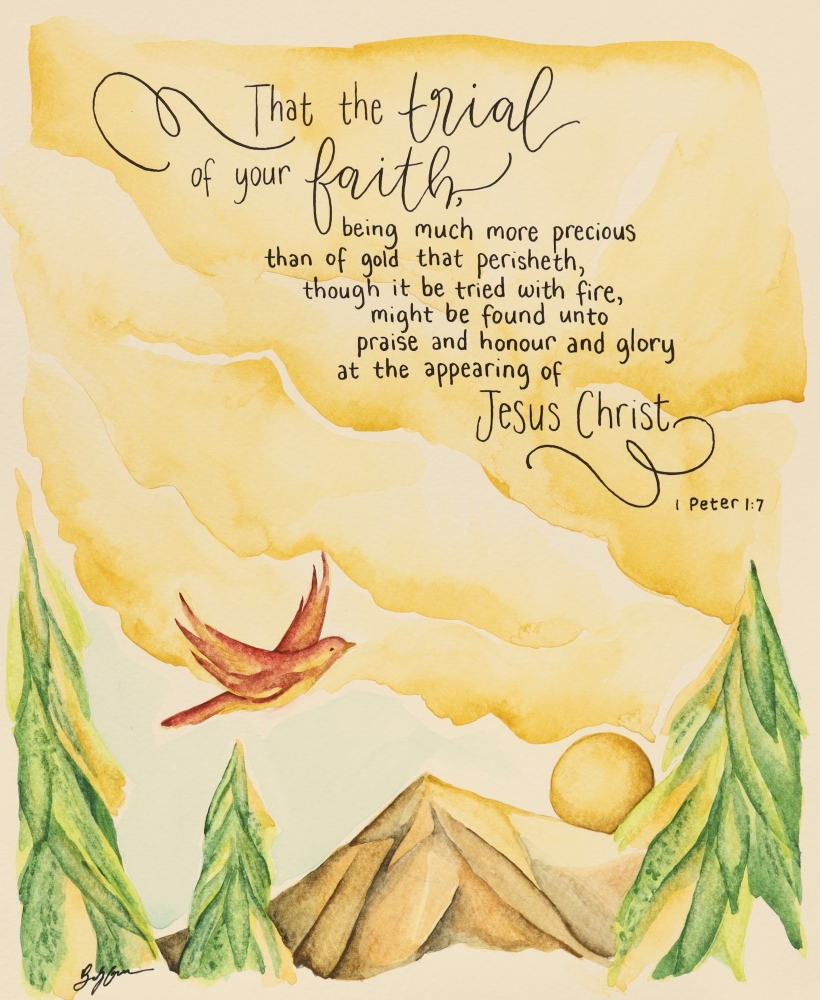 That the trial
of your faith,
being much more precious
than of gold that perisheth,
though it be tried with fire,
might be found unto
praise and honour and glory
at the appearing of
Jesus Christ
1 Peter 1:7